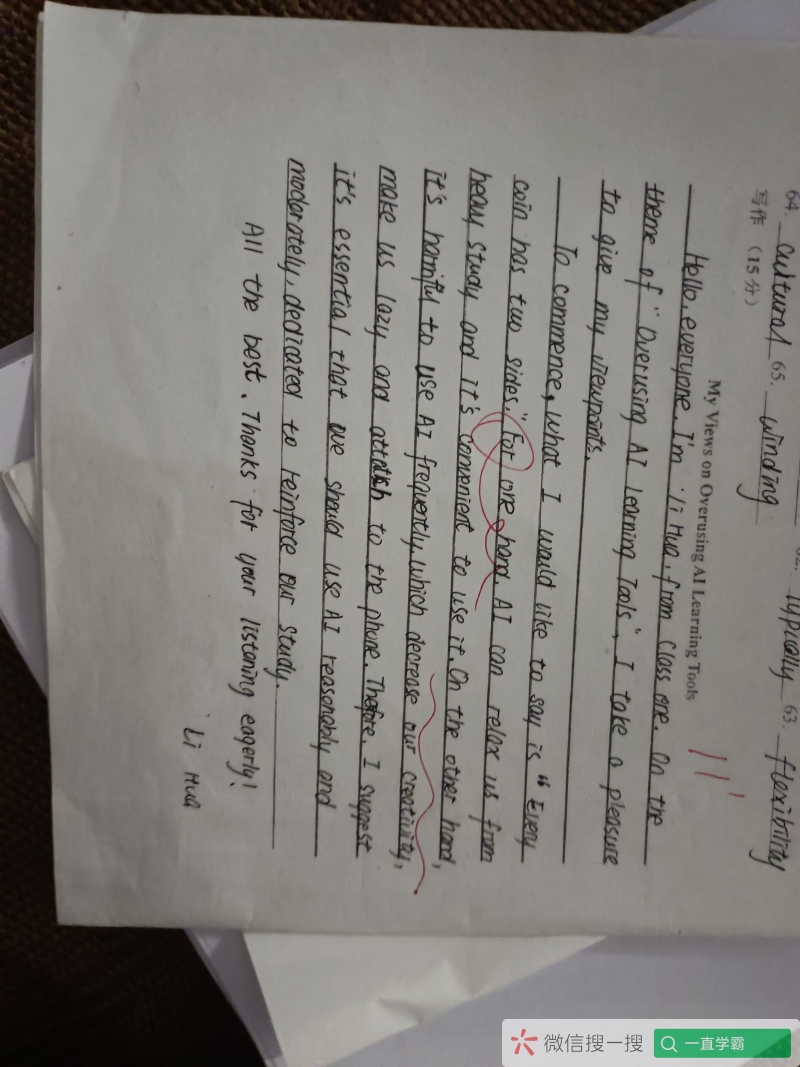 62. typically 63. flexibility
64. cultural 65. winding
写作 (15分)
My Views on Overusing AI Learning Tools
11'
Hello, everyone. I'm Li Hua, from Class one. On the
theme of "Overusing AI learning Tools", I take a pleasure
to give my viewpoints.
To commence, what I would like to say is "Every
coin has two sides." For one hand, AI can relax us from
heavy study and it's convenient to use it. On the other hand,
it's harmful to use AI frequently, which decrease our creativity,
make us lazy and attach to the phone. Therefore, I suggest
it's essential that we should use AI reasonably and
moderately, dedicated to reinforce our study.
All the best. Thanks for your listening eagerly!
Li Hua
微信搜一搜
一直学霸